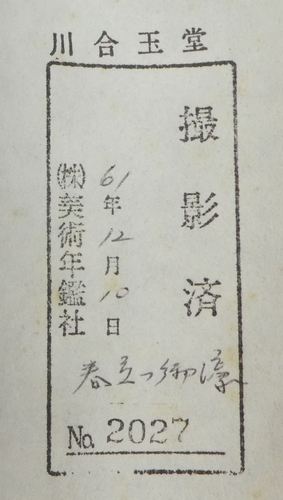 川合玉堂
撮影済
61年12月10日
㈱美術年鑑社
春立つ御濠
No. 2027